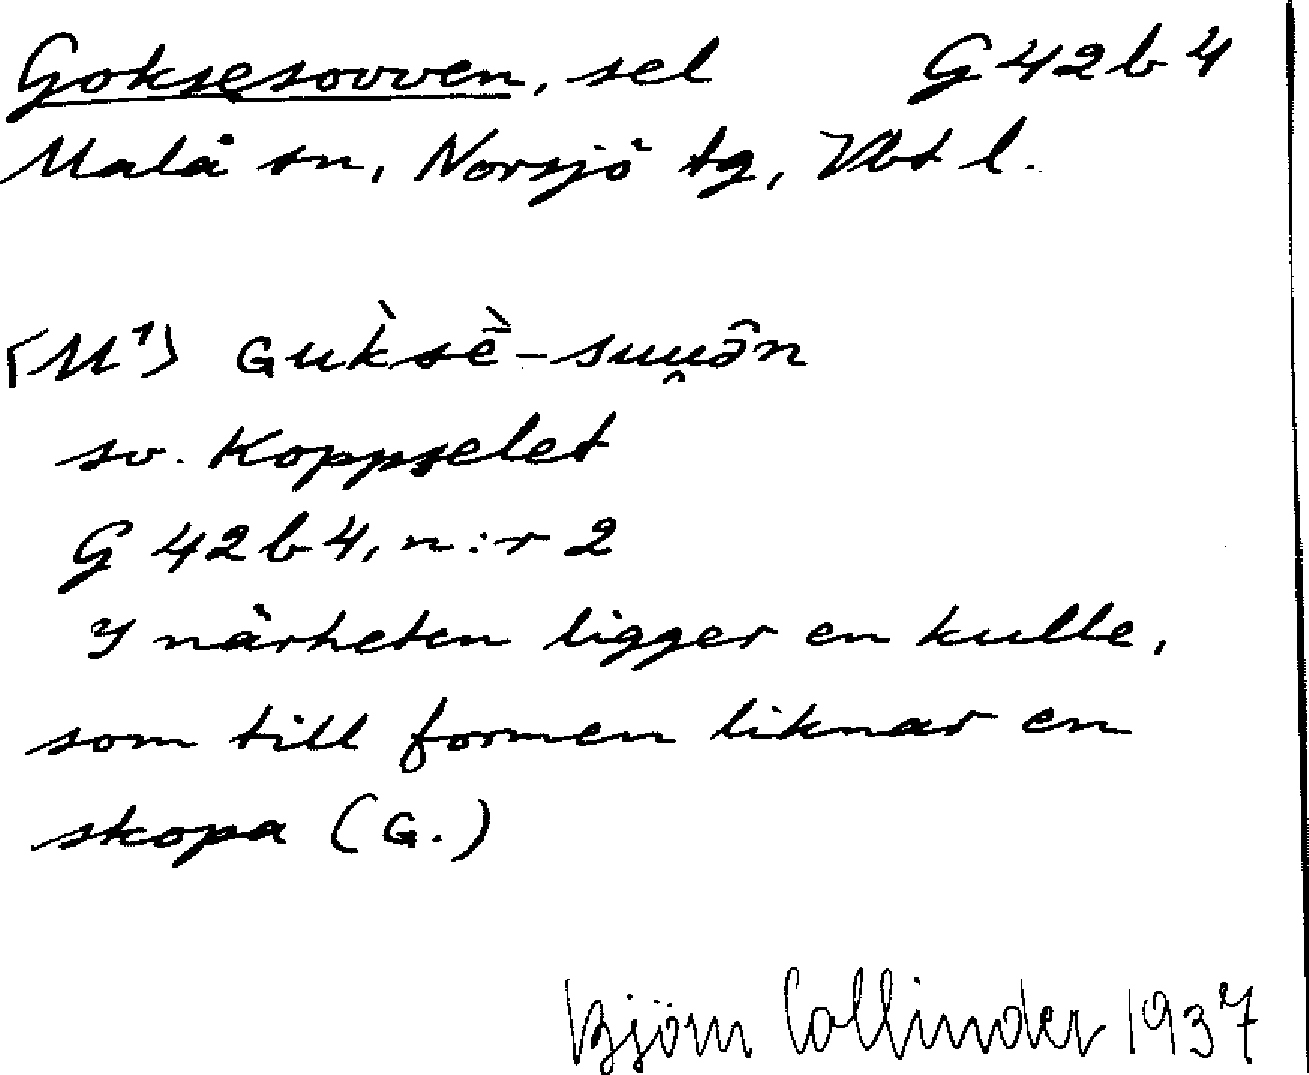 Goksesovven, sel G42b4
Malå sn, Norsjö tg, Vbt l.
[M¹] Gùksè̄-suu̯ə̑n
sv. Koppselet
G 42b4, n:r 2
I närheten ligger en kulle,
som till formen liknar en
skopa (G.)
Björn Collinder 1937